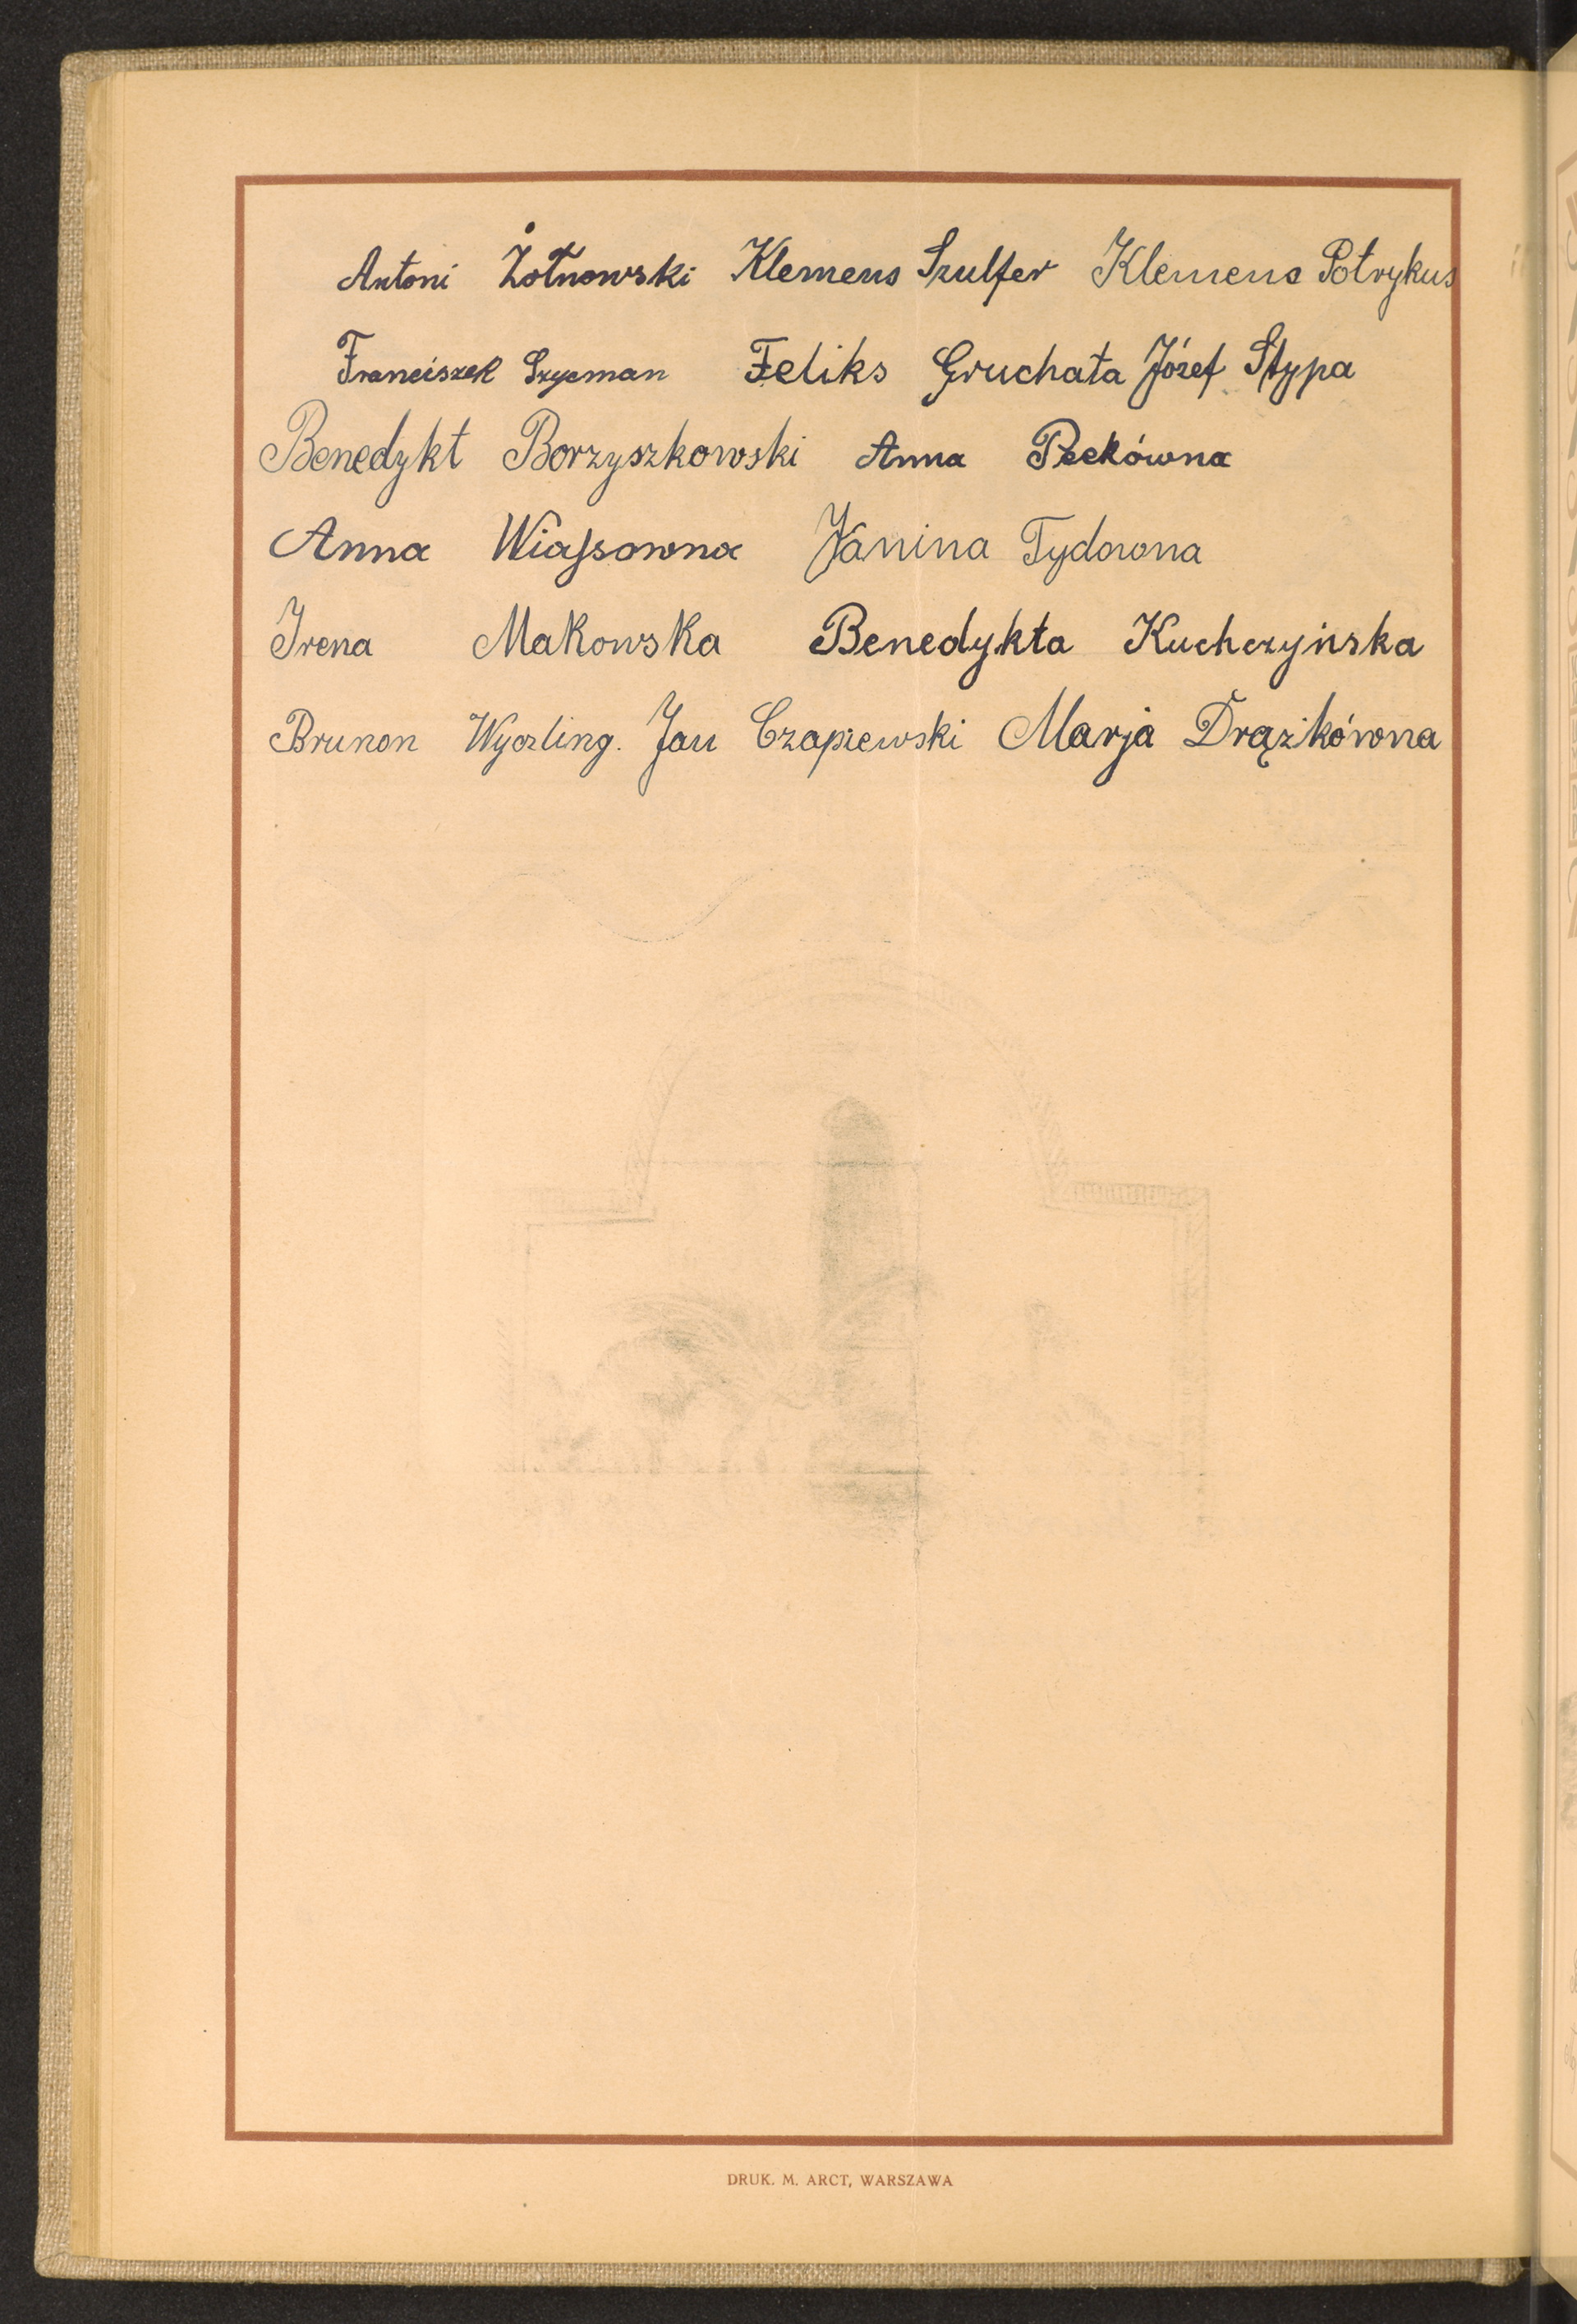 Antoni Żołnowski Klemens Szulfer Klemens Potrykus
Franciszek Szycman Feliks Gruchała Józef Stypa
Benedykt Borzyszkowski Anna Peekówna
Anna Janina Tydowna
Irena Makowska Benedykta Kuchczyńska
Brunon Wyczling. Jan Czapiewski Marja Drązikówna
DRUK. M. ARCT, WARSZAWA